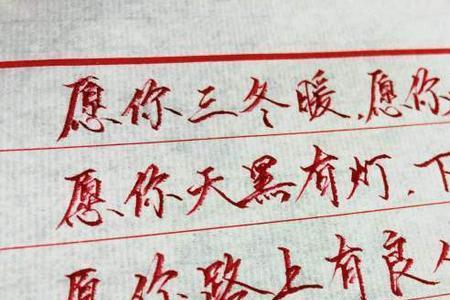 愿你三冬暖,愿你
愿你天黑有灯,下
愿你路上有良